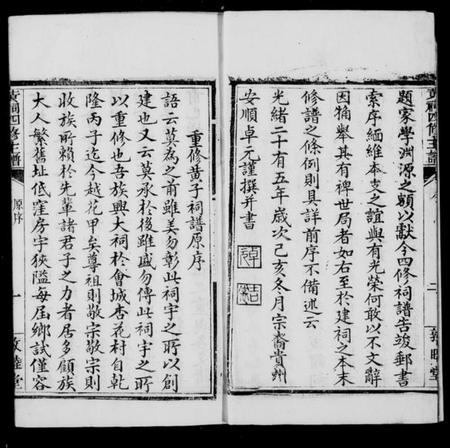 題家學淵源之額以獻今四修祠譜告竣郵書
索序緬維本支之誼與有光榮何敢以不文辭
因擒舉其有裨世局者如右至於建祠之本末
修譜之條例則具詳前序不備述云
光緒二十有五年歲次己亥冬月宗裔貴州
安順卓元謹撰并書
重修黃子祠譜原序
語云莫為之前雖美勿彰此祠宇之所以創
建也又云莫承於後雖盛勿傳此祠宇之所
以重修也吾族興大祠於會城杏花村自乾
隆丙子迄今越花甲矣尊祖則敬宗敬宗則
收族所賴於先輩諸君子之力者居多顧族
大人繁舊址低窪房宇狹隘每屆鄉試僅容
黃祠四修主譜
原序
一
敦睦堂
黃祠四修主譜
二
敦睦堂